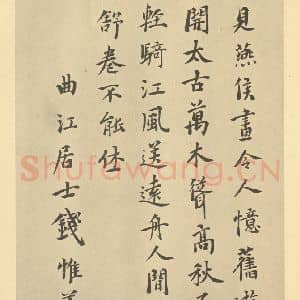 見燕侯畫令人憶舊
開太古萬木聲高秋
輕騎江風送遠舟人間
舒卷不能休
曲江居士錢惟善
Shufawang.CN